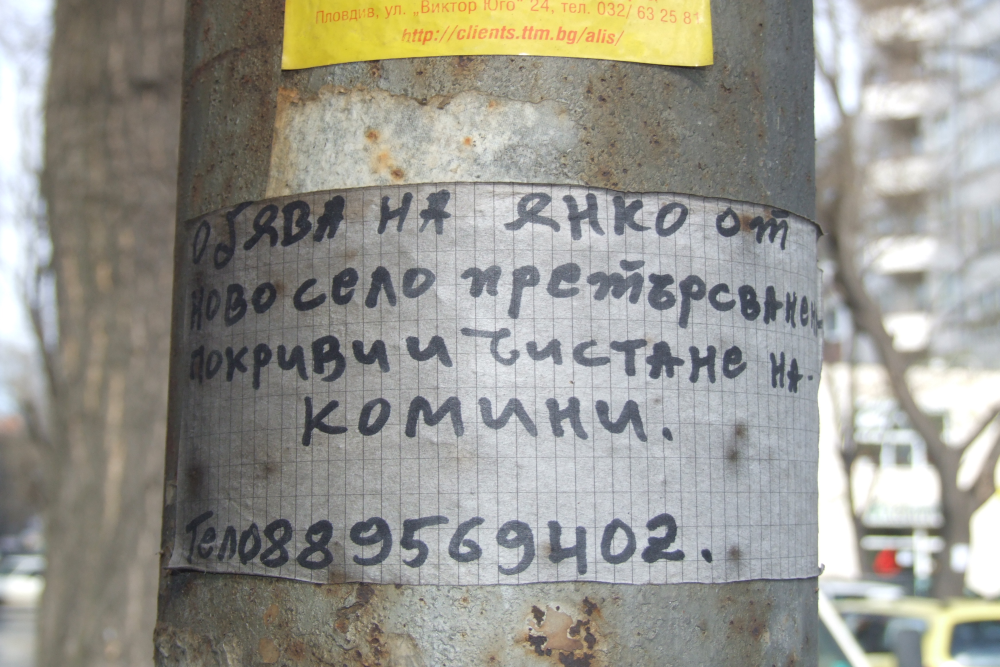 Пловдив, ул. „Виктор Юго" 24, тел. 032/ 63 25 81
http://clients.ttm.bg/alis/
ОБЯВА НА ЯНКО от
Ново село претърсване
покриви и чистане на-
комини.
Тел0889569402.